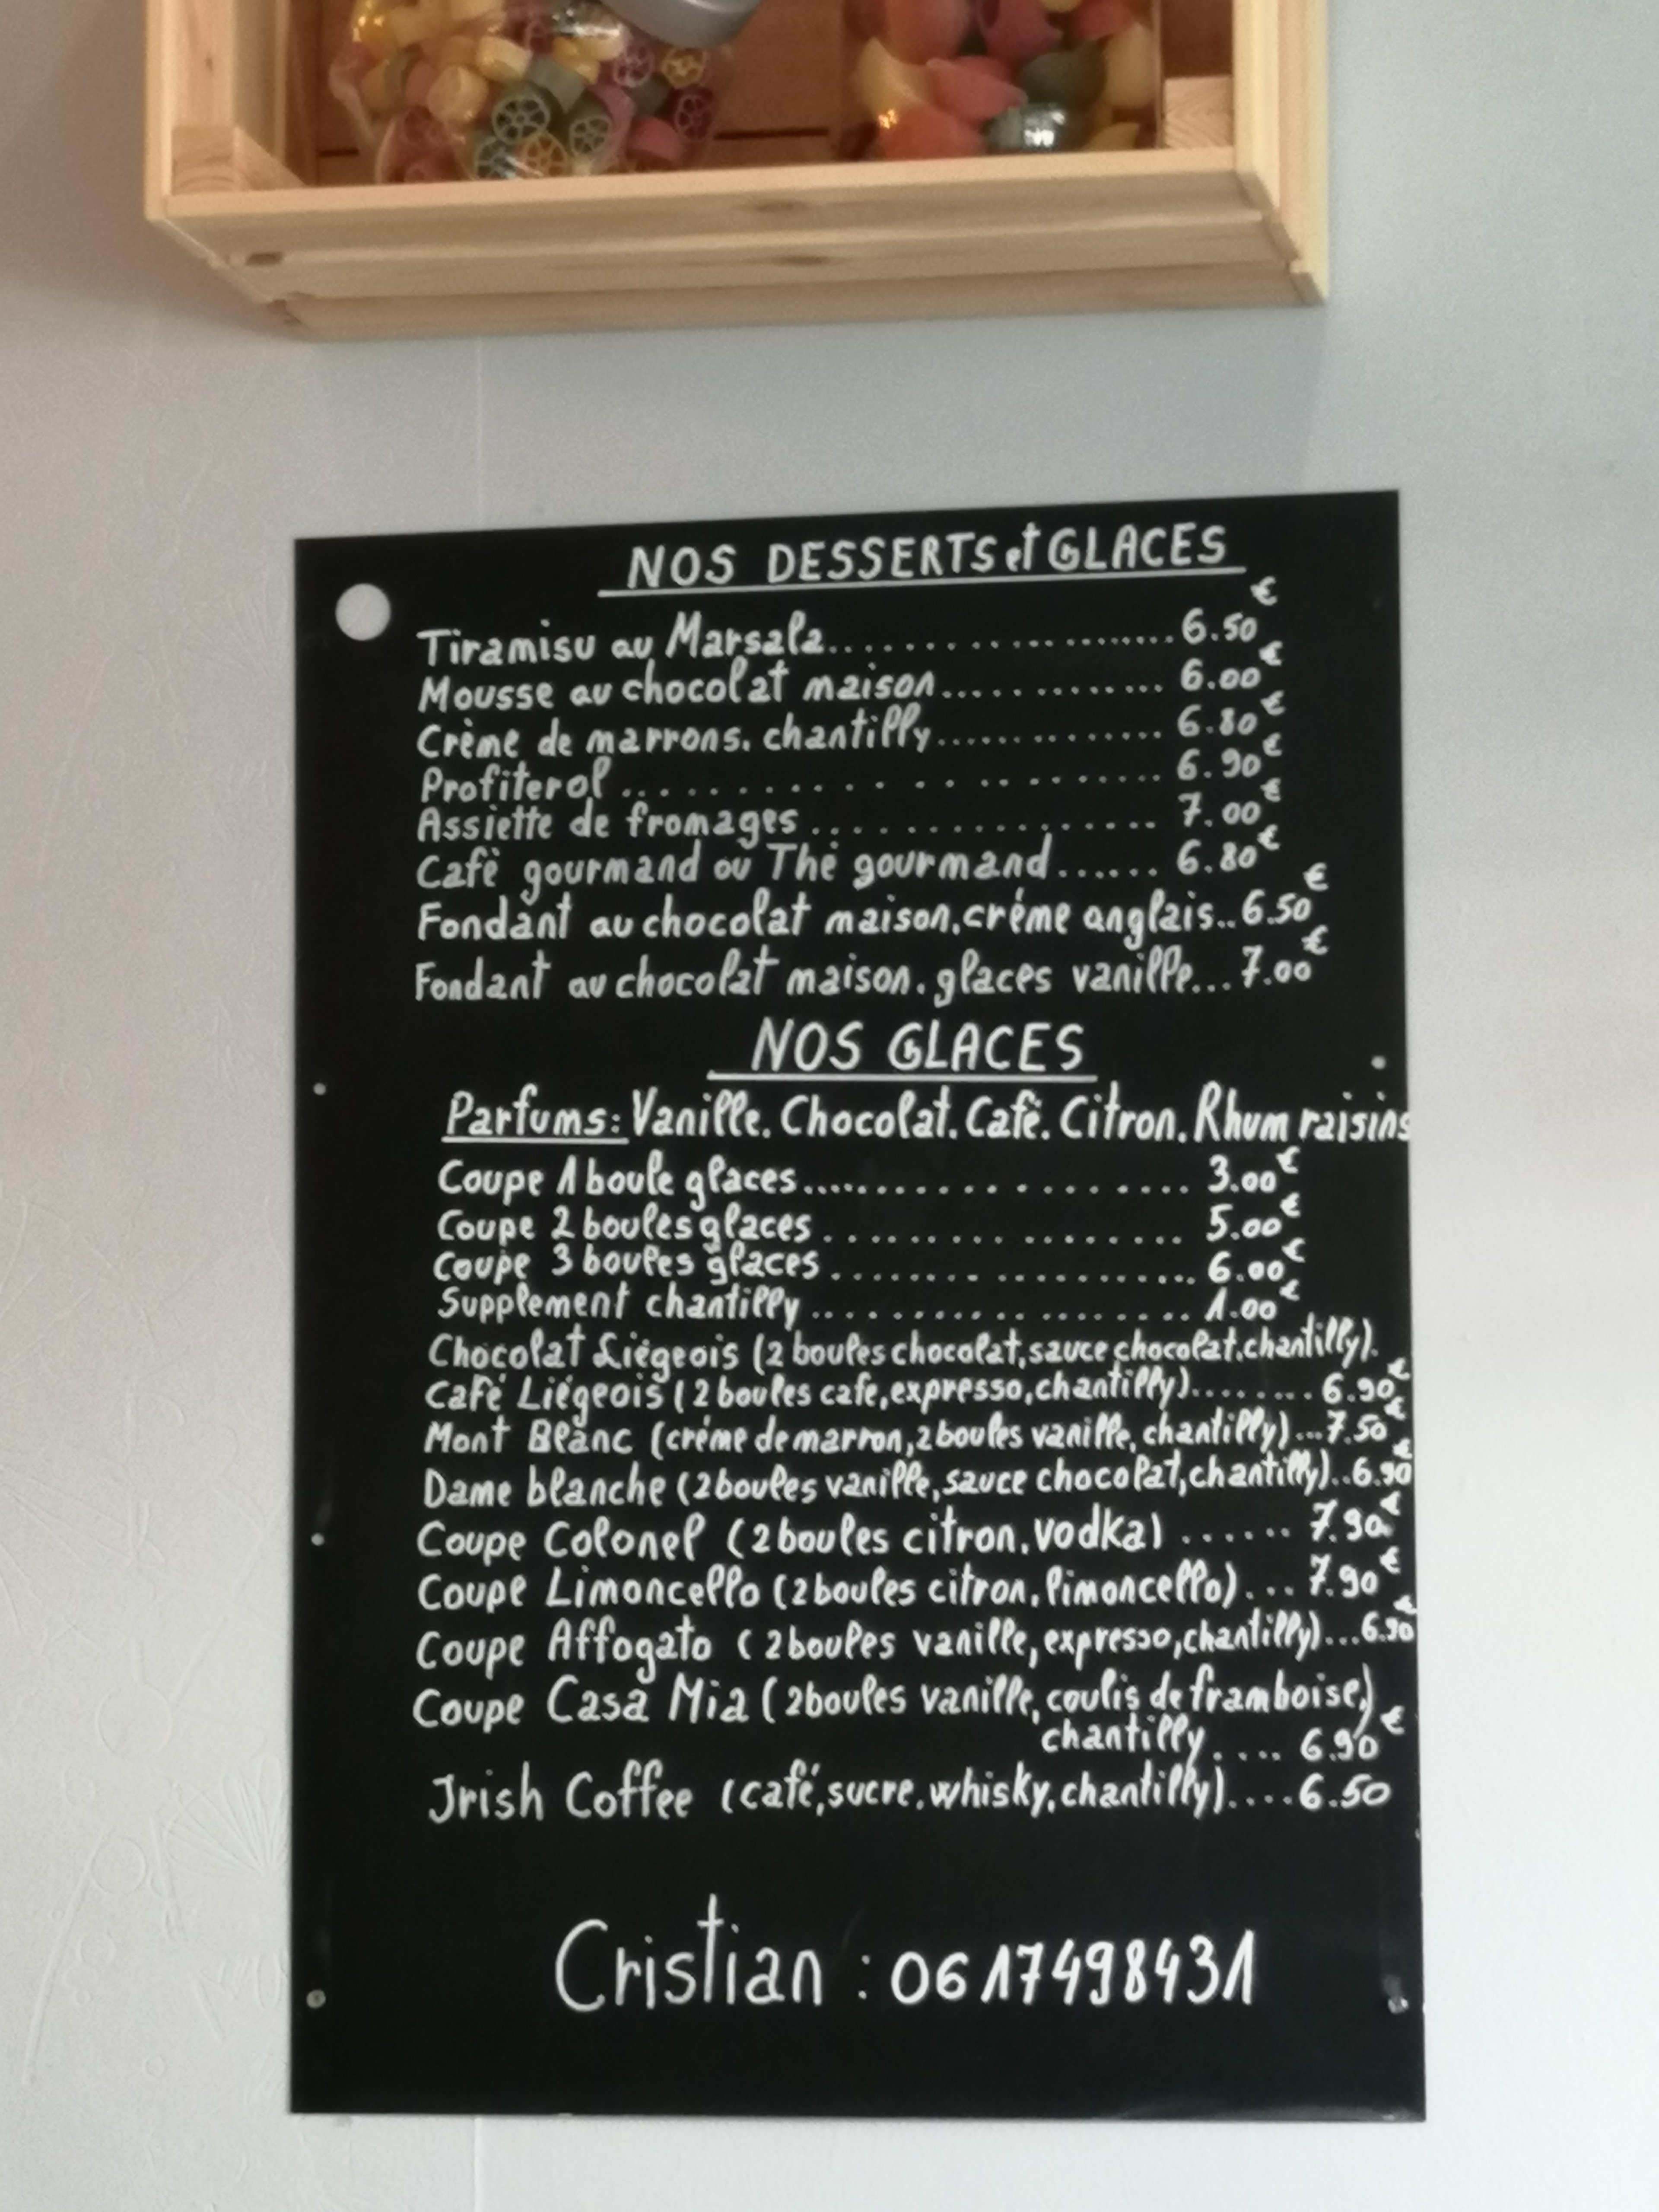 NOS DESSERTS et GLACES
Tiramisu au Marsala..................... 6.50€
Mousse au chocolat maison............. 6.00€
Crème de marrons. chantilly............. 6.80€
Profiterol................... 6.90€
Assiette de fromages.................. 7.00€
Cafè gourmand ou Thé gourmand...... 6.80€
Fondant au chocolat maison.créme anglais..6.50€
Fondant au chocolat maison.glaces vanille...7.00€
NOS GLACES
Parfums: Vanille. Chocolat. Café. Citron. Rhum raisins
Coupe 1 boule glaces................... 3.00€
Coupe 2 boules glaces................. 5.00€
Coupe 3 boules glaces.................. 6.00€
Supplement chantilly................... 1.00€
Chocolat Liégeois (2 boules chocolat,sauce chocolat.chantilly).
Café Liégeois (2 boules cafe,expresso,chantilly)........ 6.90€
Mont Blanc (créme de marron,2 boules vanille, chantilly)...7.50€
Dame blanche (2 boules vanille,sauce chocolat,chantilly)..6.90€
Coupe Colonel (2 boules citron.vodka)...... 7.90€
Coupe Limoncello (2 boules citron,limoncello).... 7.90€
Coupe Affogato (2 boules vanille,expresso,chantilly)...6.90€
Coupe Casa Mia (2 boules vanille,coulis de framboise,)
chantilly.... 6.90€
Irish Coffee (café,sucre.whisky.chantilly)....6.50
Cristian : 0617498431